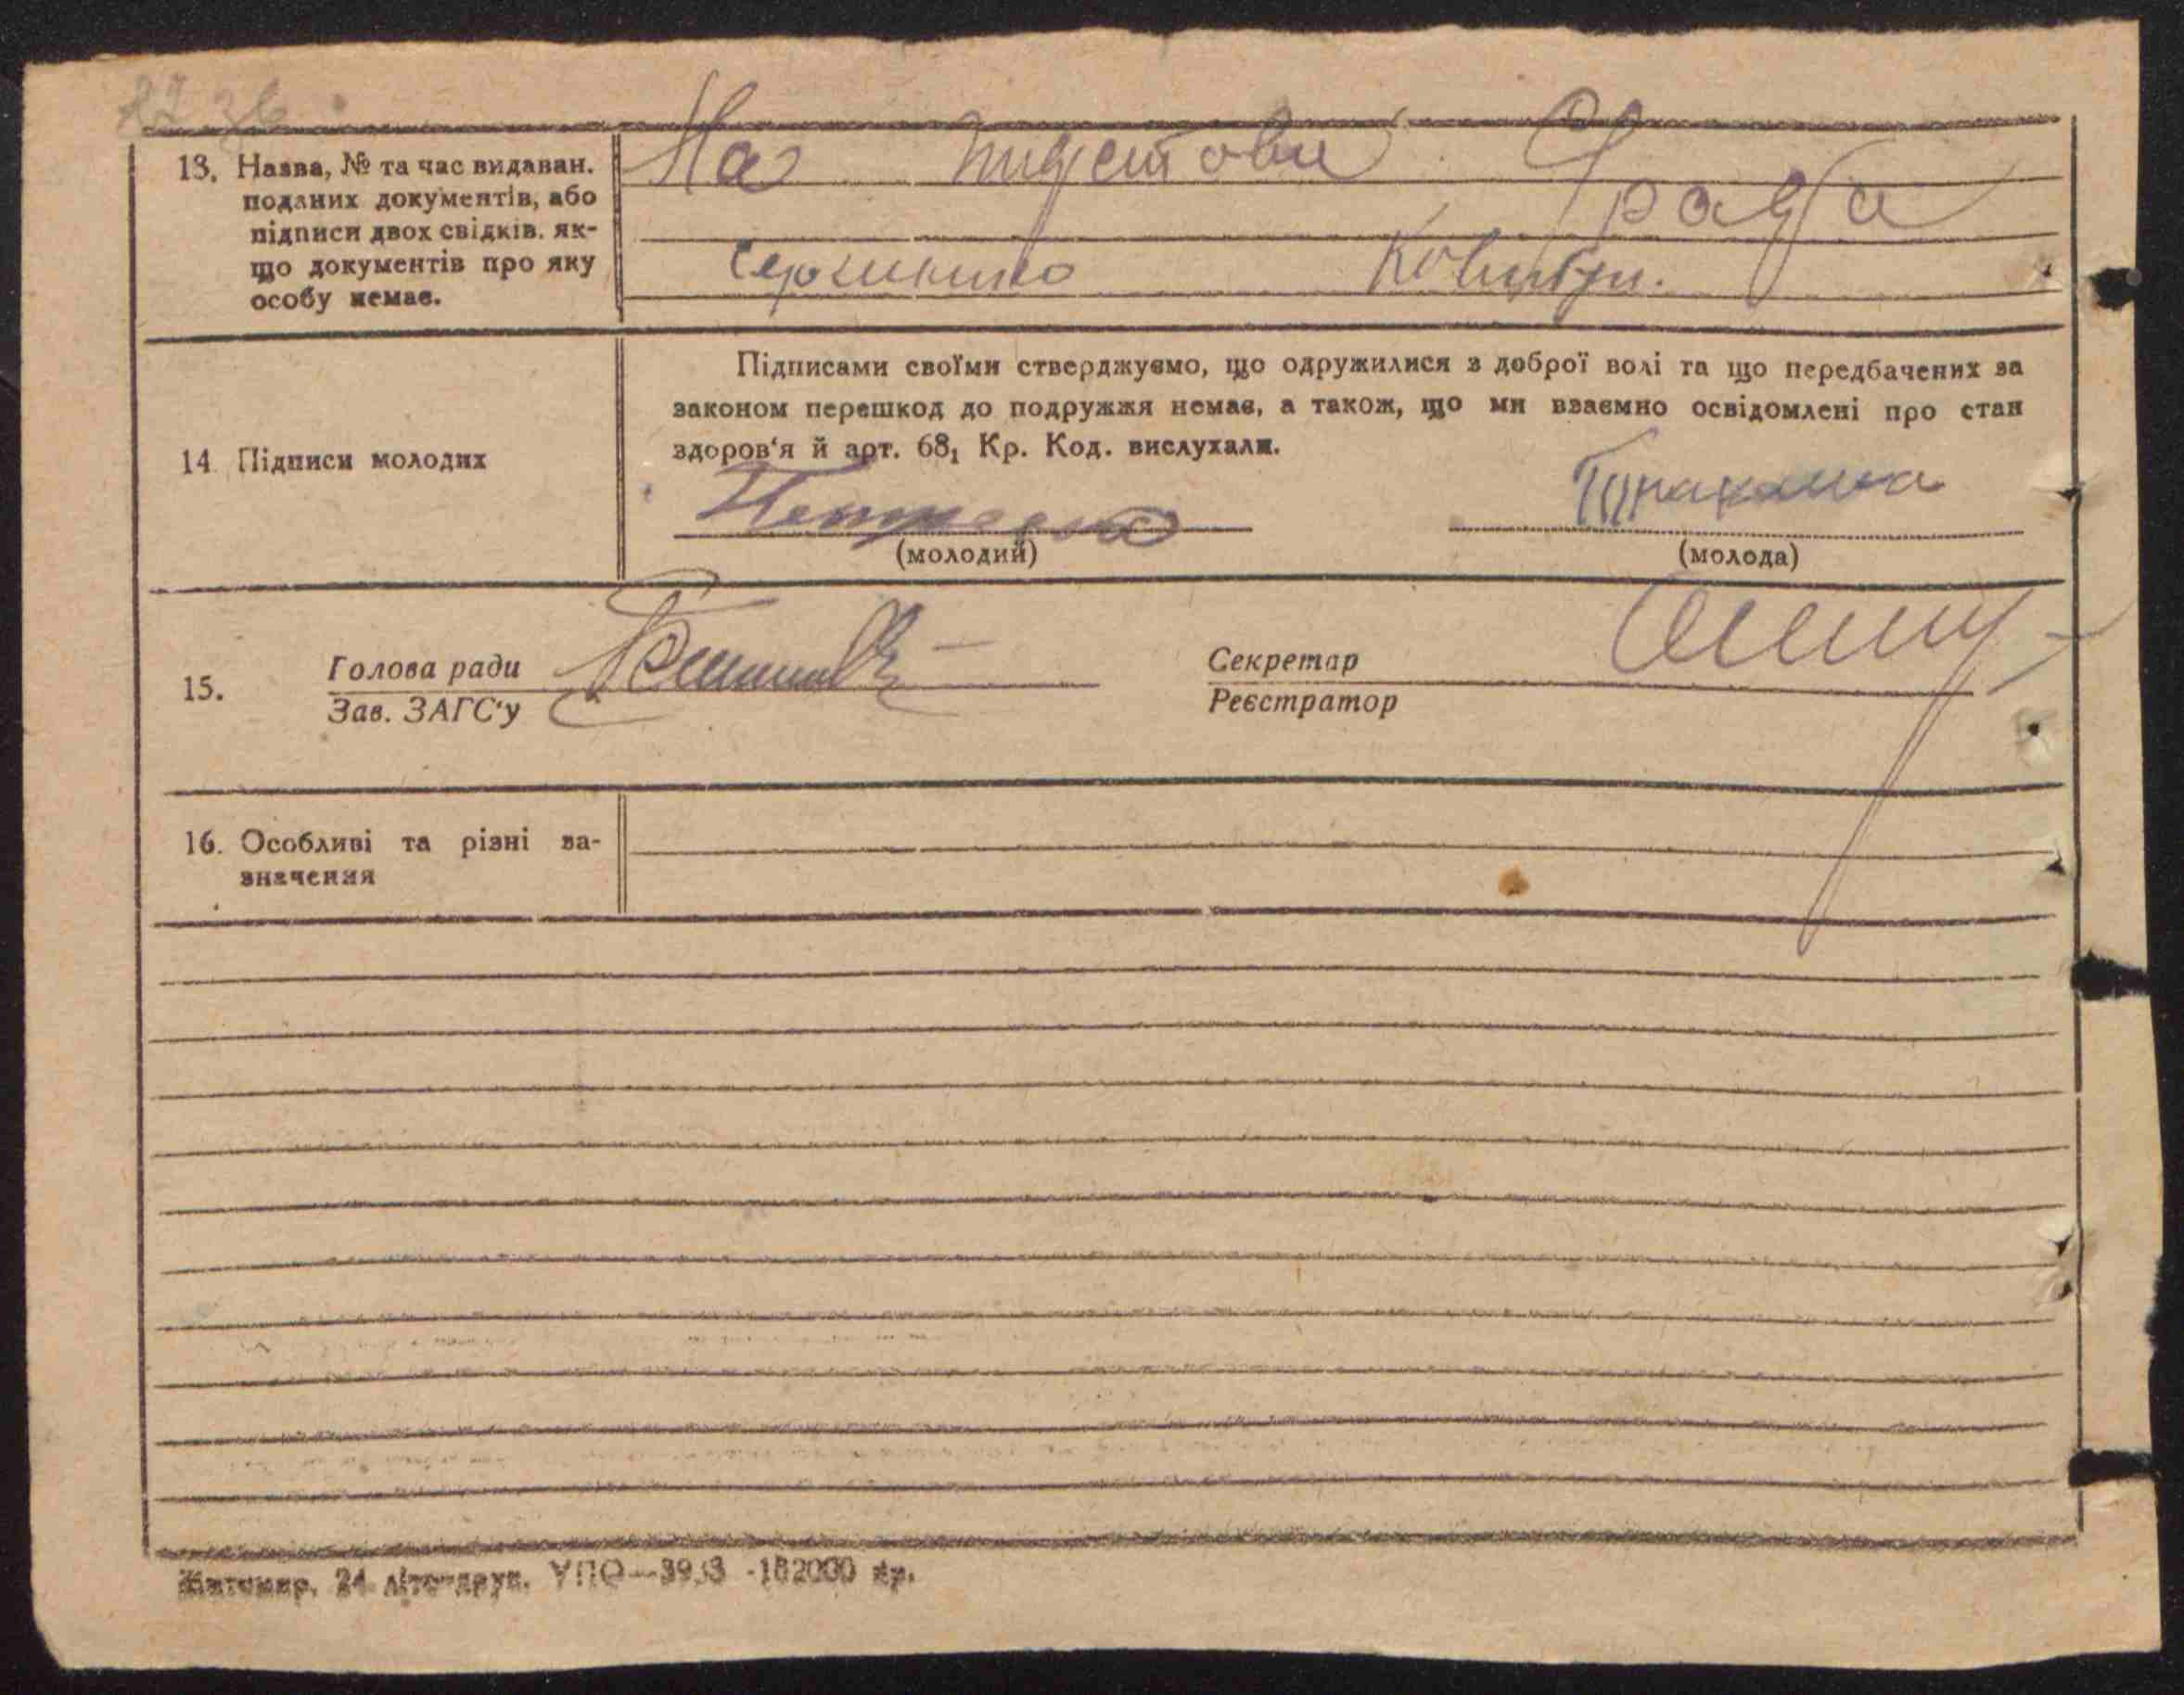 13. Назва, № та час видаван.
поданих документів, або
підписи двох свідків. як-
що документів про яку
особу немає.
На підстові
14 Підписи молодих
Підписами своїми стверджуємо, що одружилися з доброї волі та що передбачених за
законом перешкод до подружжя немає, а також, що ми взаємно освідомлені про стан
здоров'я й арт. 68₁ Кр. Код. вислухали.
(молодий)
(молода)
15.
Голова ради
Зав. ЗАГС'у
Секретар
Реєстратор
16. Особливі та різні за-
значення
Житомир, 24 літо-друк. УПО—3933 -182000 пр.